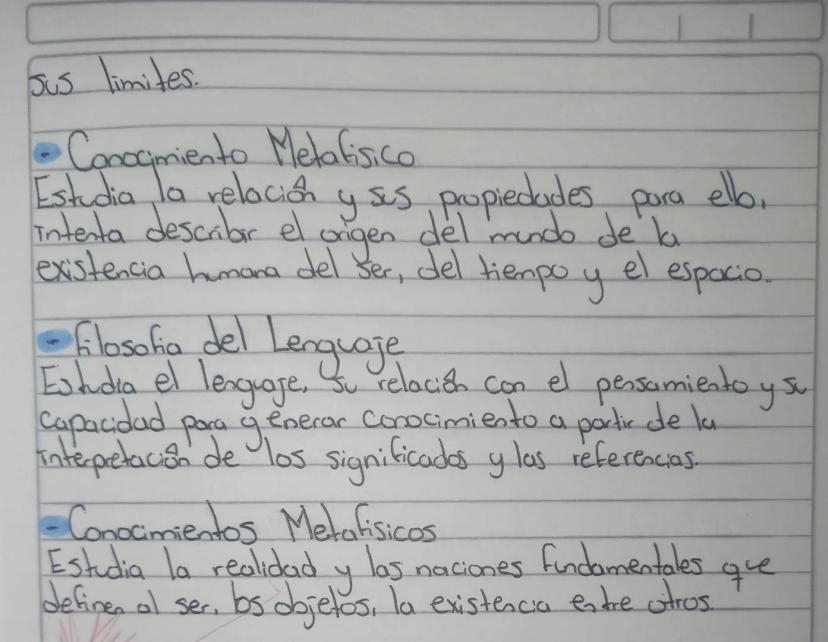 sus limites.
- Conocimiento Metafisico
Estudia la relación y sus propiedades para ello,
intenta describir el origen del mundo de la
existencia humana del ser, del tiempo y el espacio.
- Filosofia del Lenguaje
Estudia el lenguaje, su relación con el pensamiento y su
capacidad para generar conocimiento a partir de la
interpretación de los significados y las referencias.
- Conocimientos Metafisicos
Estudia la realidad y las naciones fundamentales que
definen al ser, los objetos, la existencia entre otros.